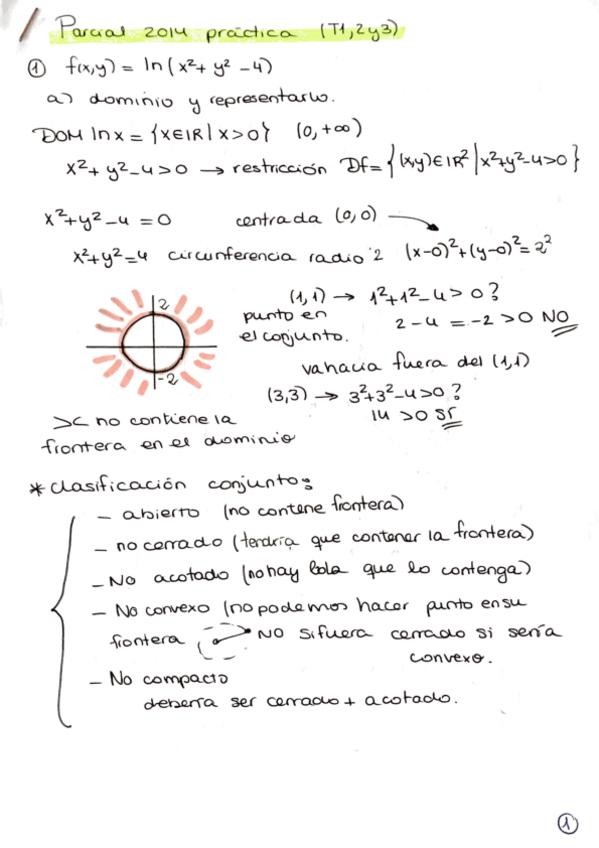 Parcial 2014 práctica (T1,2y3)
① f(x,y) = ln(x² + y² - 4)
a) dominio y representarlo.
DOM ln x = {x∈ℝ | x>0} (0,+∞)
x² + y² - 4 > 0 → restricción Df = {(x,y)∈ℝ² | x²+y²-4>0}
x² + y² - 4 = 0 centrada (0,0)
x² + y² = 4 circunferencia radio 2 (x-0)² + (y-0)² = 2²
2
-2
(1,1) → 1²+1²-4 > 0?
punto en
el conjunto.
2 - 4 = -2 > 0 NO
va hacia fuera del (1,1)
(3,3) → 3²+3²-4>0?
14 >0 SÍ
>< no contiene la
frontera en el dominio
* clasificación conjunto:
- abierto (no contiene frontera)
- no cerrado (tendría que contener la frontera)
- No acotado (no hay bola que lo contenga)
- No convexo (no podemos hacer punto en su
frontera NO si fuera cerrado si sería
convexo.
- No compacto
debería ser cerrado + acotado.
①